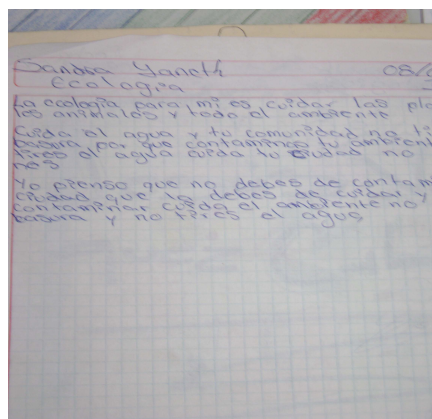 Sandra Yaneth 08/
Ecologia
La ecologia para mi es cuidar las
los animales y todo el ambiente
Cuida el agua y tu comunidad no
basura por que contaminas tu
tires el agua cuida tu ciudad no
Yo pienso que no debes de
ciudad que la debes de cuidar y
contaminar cuida el ambiente no
basura y no tires el agua